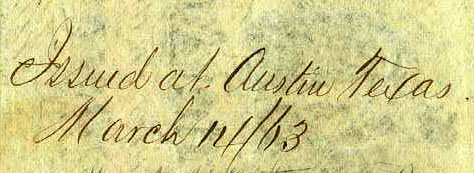 Issued at Austin Texas.
March 14/63